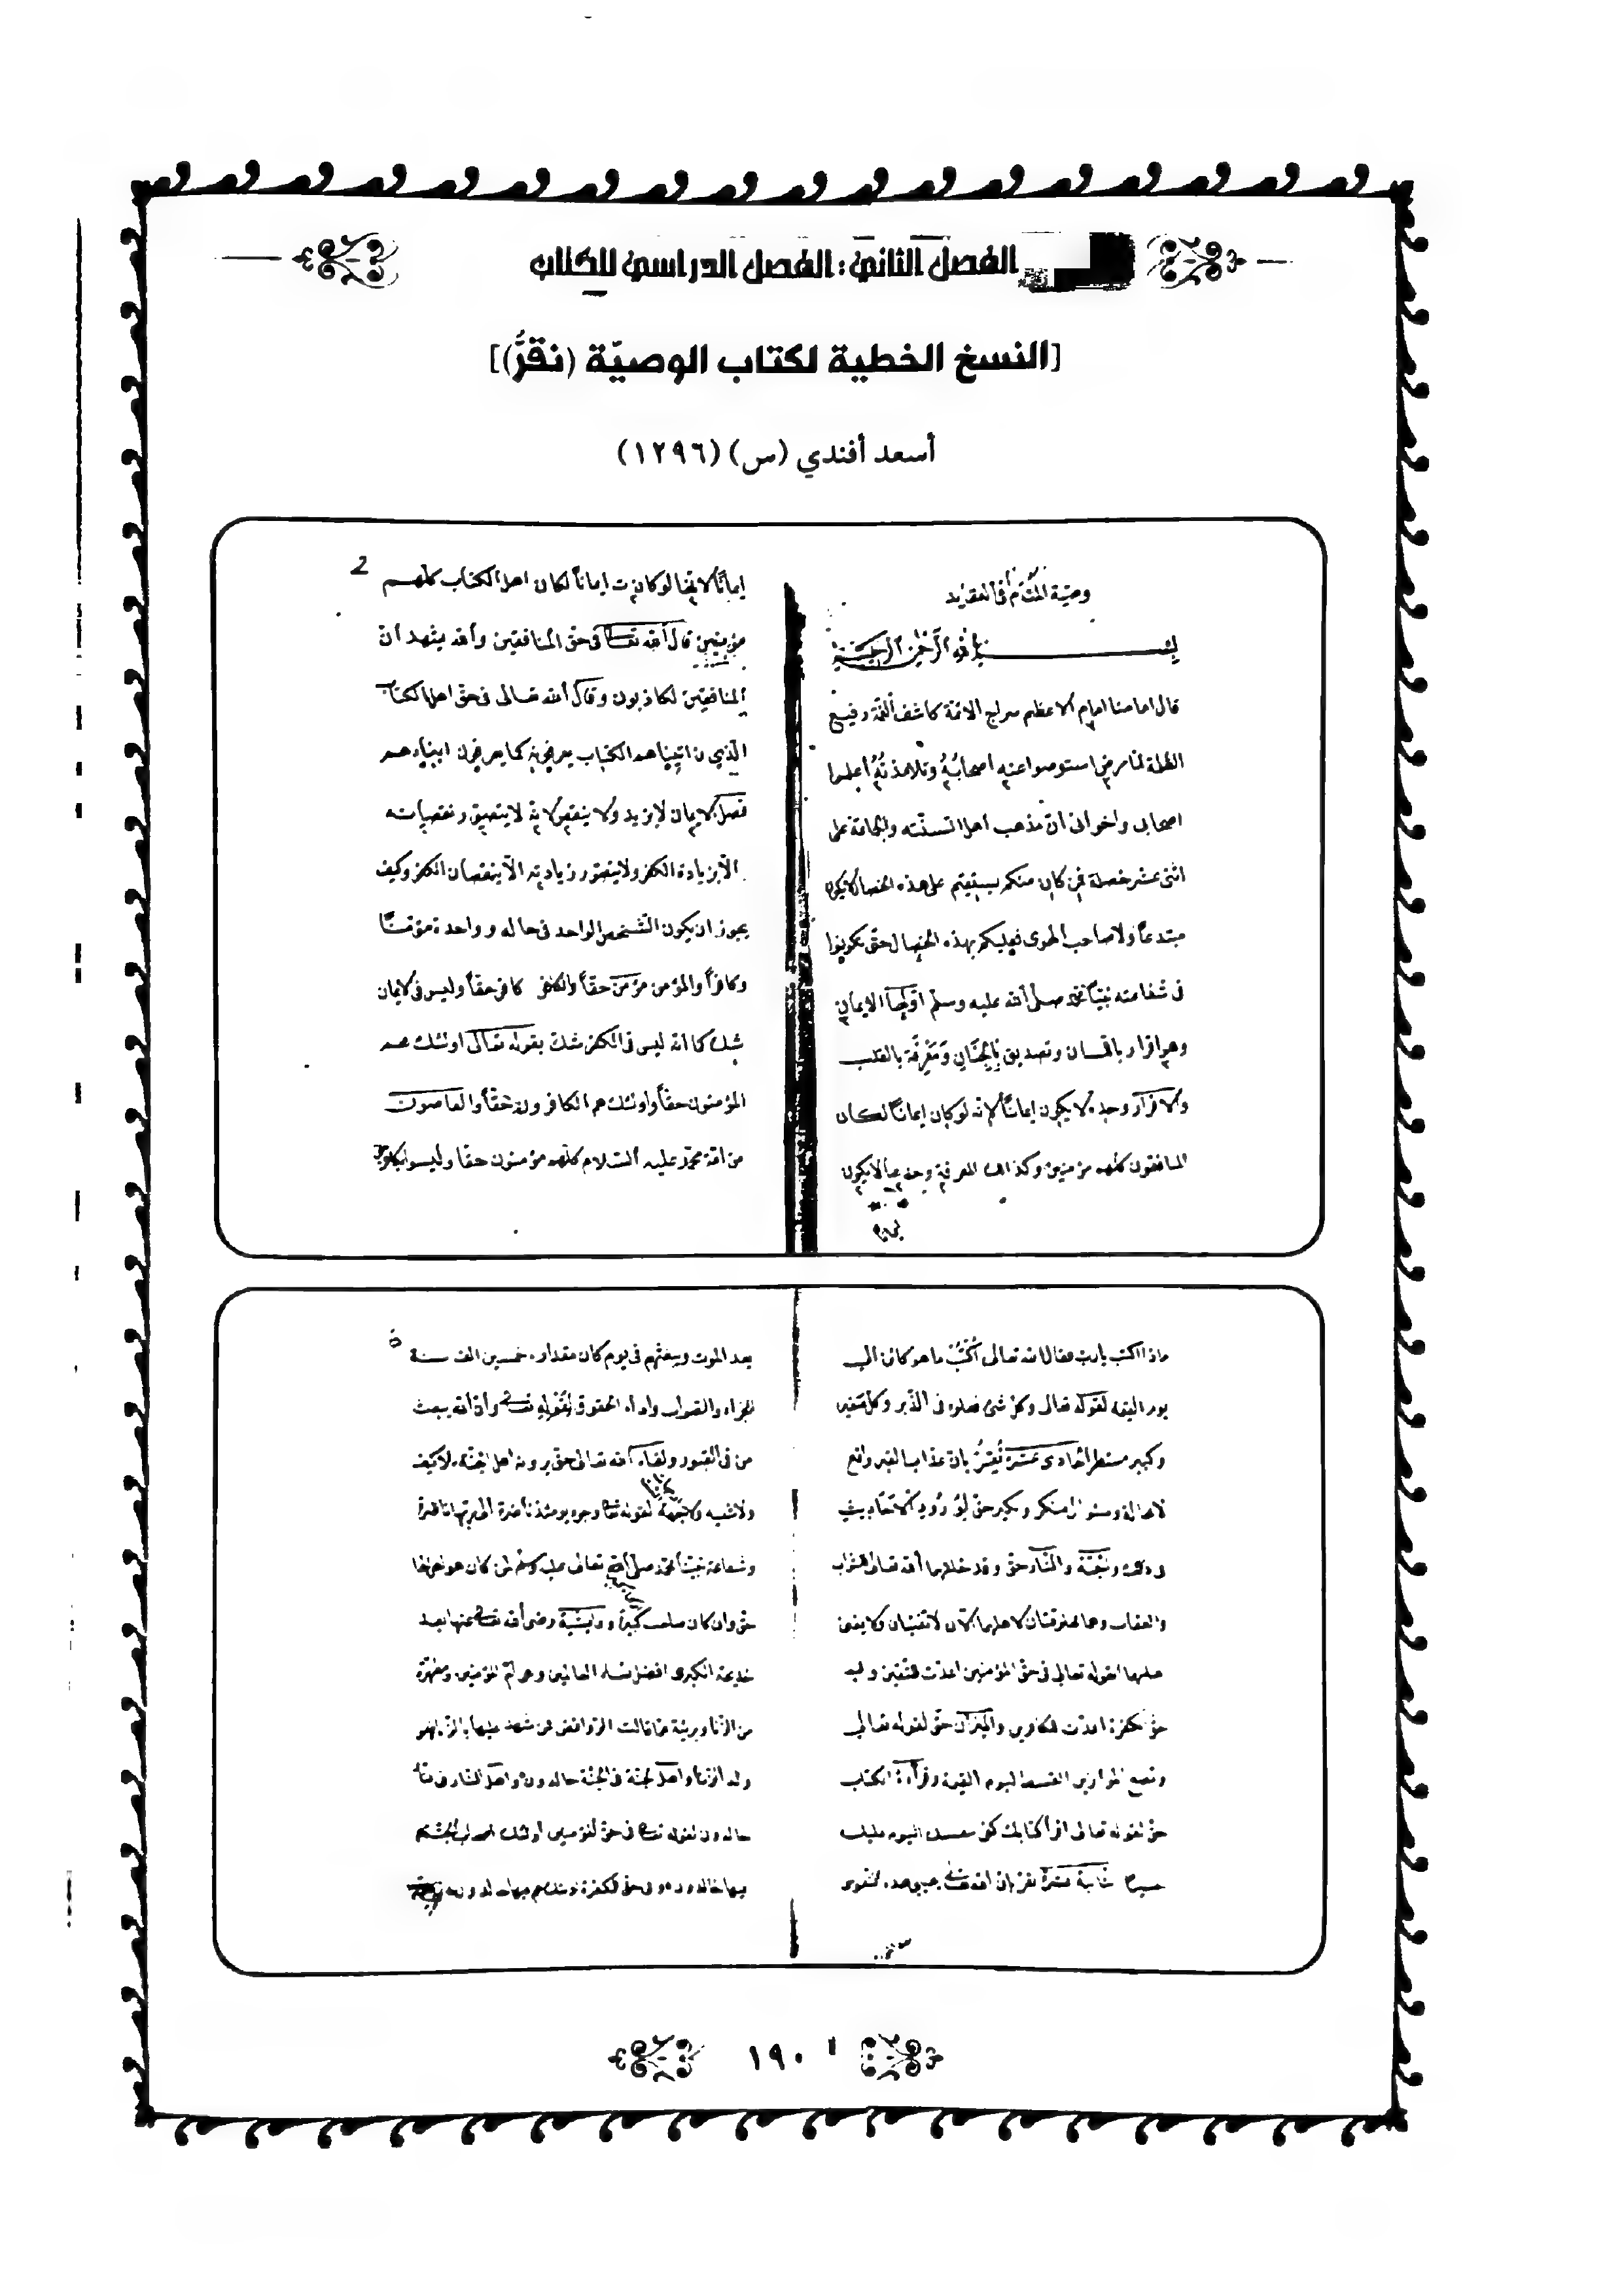 الفصل الثاني: الفصل الدراسي للكتاب
[النسخ الخطية لكتاب الوصيّة (نقرُّ)]
أسعد أفندي (س) (١٢٩٦)
وصية في العقايد
بسم الله الرحمن الرحيم
قال امامنا امام الاعظم سراج الائمة كاشف الغمة رفيع
الظلمة لما مرض استوصوا عنه اصحابُهُ وتلامذتُهُ أعلموا
اصحابي واخواني انّ مذهب اهل السنّة والجماعة على
اثنى عشر خصلة فمن كان منكم يستقيم على هذه الخصال لا يكون
مبتدعاً ولا صاحب الهوى فعليكم بهذه الخصال حتى تكونوا
في شفاعة نبينا محمد صلى الله عليه وسلم اوّلها الايمان
وهو اقرار باللسان وتصديق بالجنان ومعرفة بالقلب
والاقرار وحده لا يكون ايماناً لانه لو كان ايماناً لكان
المنافقون كلهم مؤمنين وكذلك المعرفة وحدها لا يكون
2
ايماناً لانها لو كانت ايماناً لكان اهل الكتاب كلهم
مؤمنين قال الله تعالى في حق المنافقين والله يشهد انّ
المنافقين لكاذبون وقال الله تعالى في حق اهل الكتاب
الّذين اتيناهم الكتاب يعرفونه كما يعرفون ابناءهم
فصل الايمان لا يزيد ولا ينقص لانه لا يتصور نقصانه
الاّ بزيادة الكفر ولا يتصور زيادته الاّ بنقصان الكفر وكيف
يجوز ان يكون الشخص الواحد في حاله وواحدة مؤمناً
وكافراً والمؤمن مؤمن حقاً والكافر كافر حقاً وليس في الايمان
شك كما انه ليس في الكفر شك بقوله تعالى اولئك هم
المؤمنون حقاً واولئك هم الكافرون حقاً والعاصون
من امة محمد عليه السلام كلّهم مؤمنون حقا وليسوا بكافرين
ماذا اكتب يا رب فقال الله تعالى أكتب ما هو كائن الى
يوم القيمة لقوله تعالى وكل شئ فعلوه في الزبر وكل صغير
وكبير مستطر الحادي عشرة نُقِرُّ بانّ عذاب القبر واقع
لا محالة وسئوال منكر ونكير حق لورود الاحاديث
والجنّة والنّار حق وقد خلقهما الله تعالى للثواب
والعقاب وهما مخلوقتان لاهلهما الآن لا تفنيان ولا يفنى
اهلهما لقوله تعالى في حق المؤمنين اعدّت للمتقين وفي
حق الكفرة اعدّت للكافرين والميزان حق لقوله تعالى
ونضع الموازين القسط ليوم القيمة وقراءة الكتاب
حق لقوله تعالى اقرأ كتابك كفى بنفسك اليوم عليك
حسيبا ثانية عشرة نقرّ بان الله تعالى يحيي هذه النفوس
بعد الموت وبعثهم في يوم كان مقداره خمسين الف سنة
للجزاء والثواب واداء الحقوق لقوله تعالى وأن الله يبعث
من في القبور ولقاء الله تعالى حق يرونه اهل الجنّة بلا كيف
ولا شبيه ولا جهة لقوله تعالى وجوه يومئذ ناضرة الى ربّها ناظرة
وشفاعة نبينا محمد صلى الله تعالى عليه وسلم لمن كان هو اهلها
حق وان كان صاحب كبيرة وعايشة رضي الله تعالى عنها بعد
خديجة الكبرى افضل نساء العالمين وهي امّ المؤمنين ومطهّرة
من الزّنا وبريئة عمّا قالت الرّوافض فمن شهد عليها بالزّنا فهو
ولد الزنا واهل الجنّة في الجنّة خالدون واهل النّار في النار
خالدون لقوله تعالى في حق المؤمنين اولئك اصحاب الجنّة هم
فيها خالدون وفي حق الكفرة
١٩٠